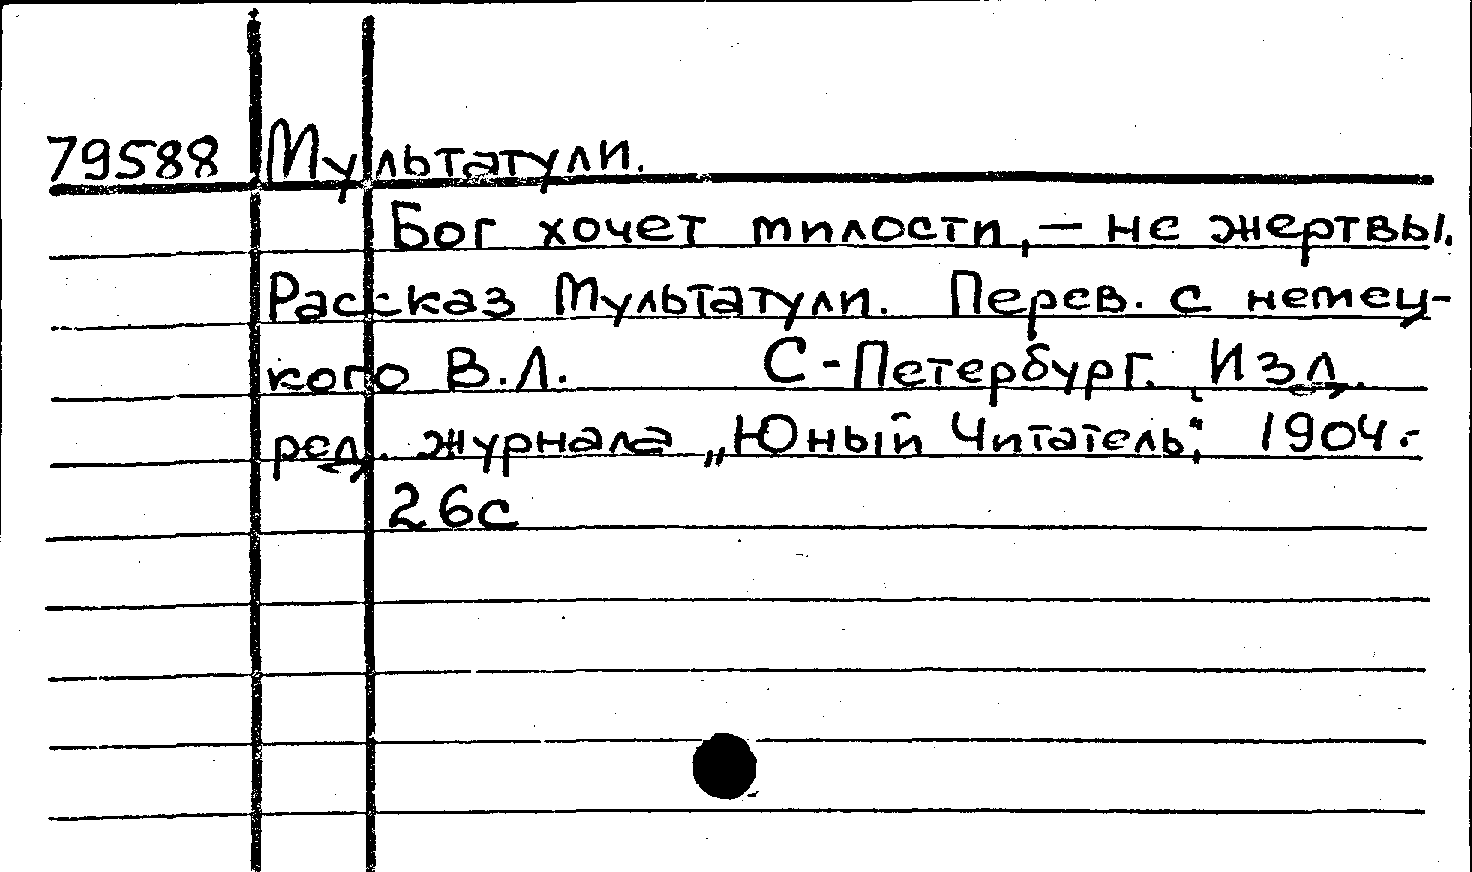 79588 Мультатули.
Бог хочет милости, — не жертвы.
Рассказ Мультатули. Перев. с немец-
кого В.Л. С-Петербург. Изд.
ред. журнала „Юный Читатель“, 1904.-
26с